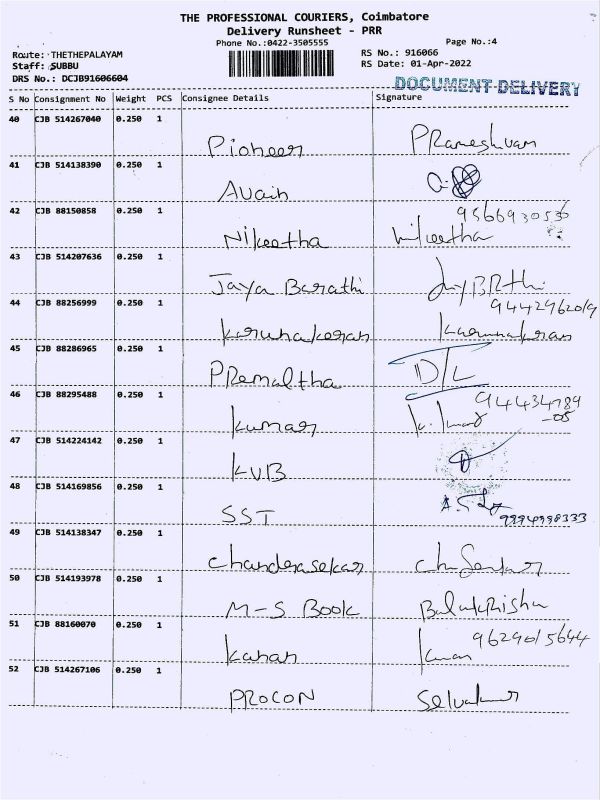 THE PROFESSIONAL COURIERS, Coimbatore
Delivery Runsheet - PRR
Phone No.:0422-3505555
Page No.:4
Route: THETHEPALAYAM
RS No.: 916066
Staff: SUBBU
RS Date: 01-Apr-2022
DRS No.: DCJB91606604
DOCUMENT DELIVERY
S No Consignment No Weight PCS Consignee Details Signature
40 CJB 514267040 0.250 1
Pioneer PRameshvam
41 CJB 514138390 0.250 1
Avain
42 CJB 88150858 0.250 1
9566930536
Nikeetha Nikeetha
43 CJB 514207636 0.250 1
Jaya Barathi JayBRthi
44 CJB 88256999 0.250 1
9442962019
karunakaran karunakaran
45 CJB 88286965 0.250 1
PRemaltha D/L
46 CJB 88295488 0.250 1
94434789
-05
kumar
47 CJB 514224142 0.250 1
KVB
48 CJB 514169856 0.250 1
SST 9994998333
49 CJB 514138347 0.250 1
chandrasekar
50 CJB 514193978 0.250 1
M-S Book BalakRisha
51 CJB 88160070 0.250 1
9629015644
kanan
52 CJB 514267106 0.250 1
PROCON Selvakumar